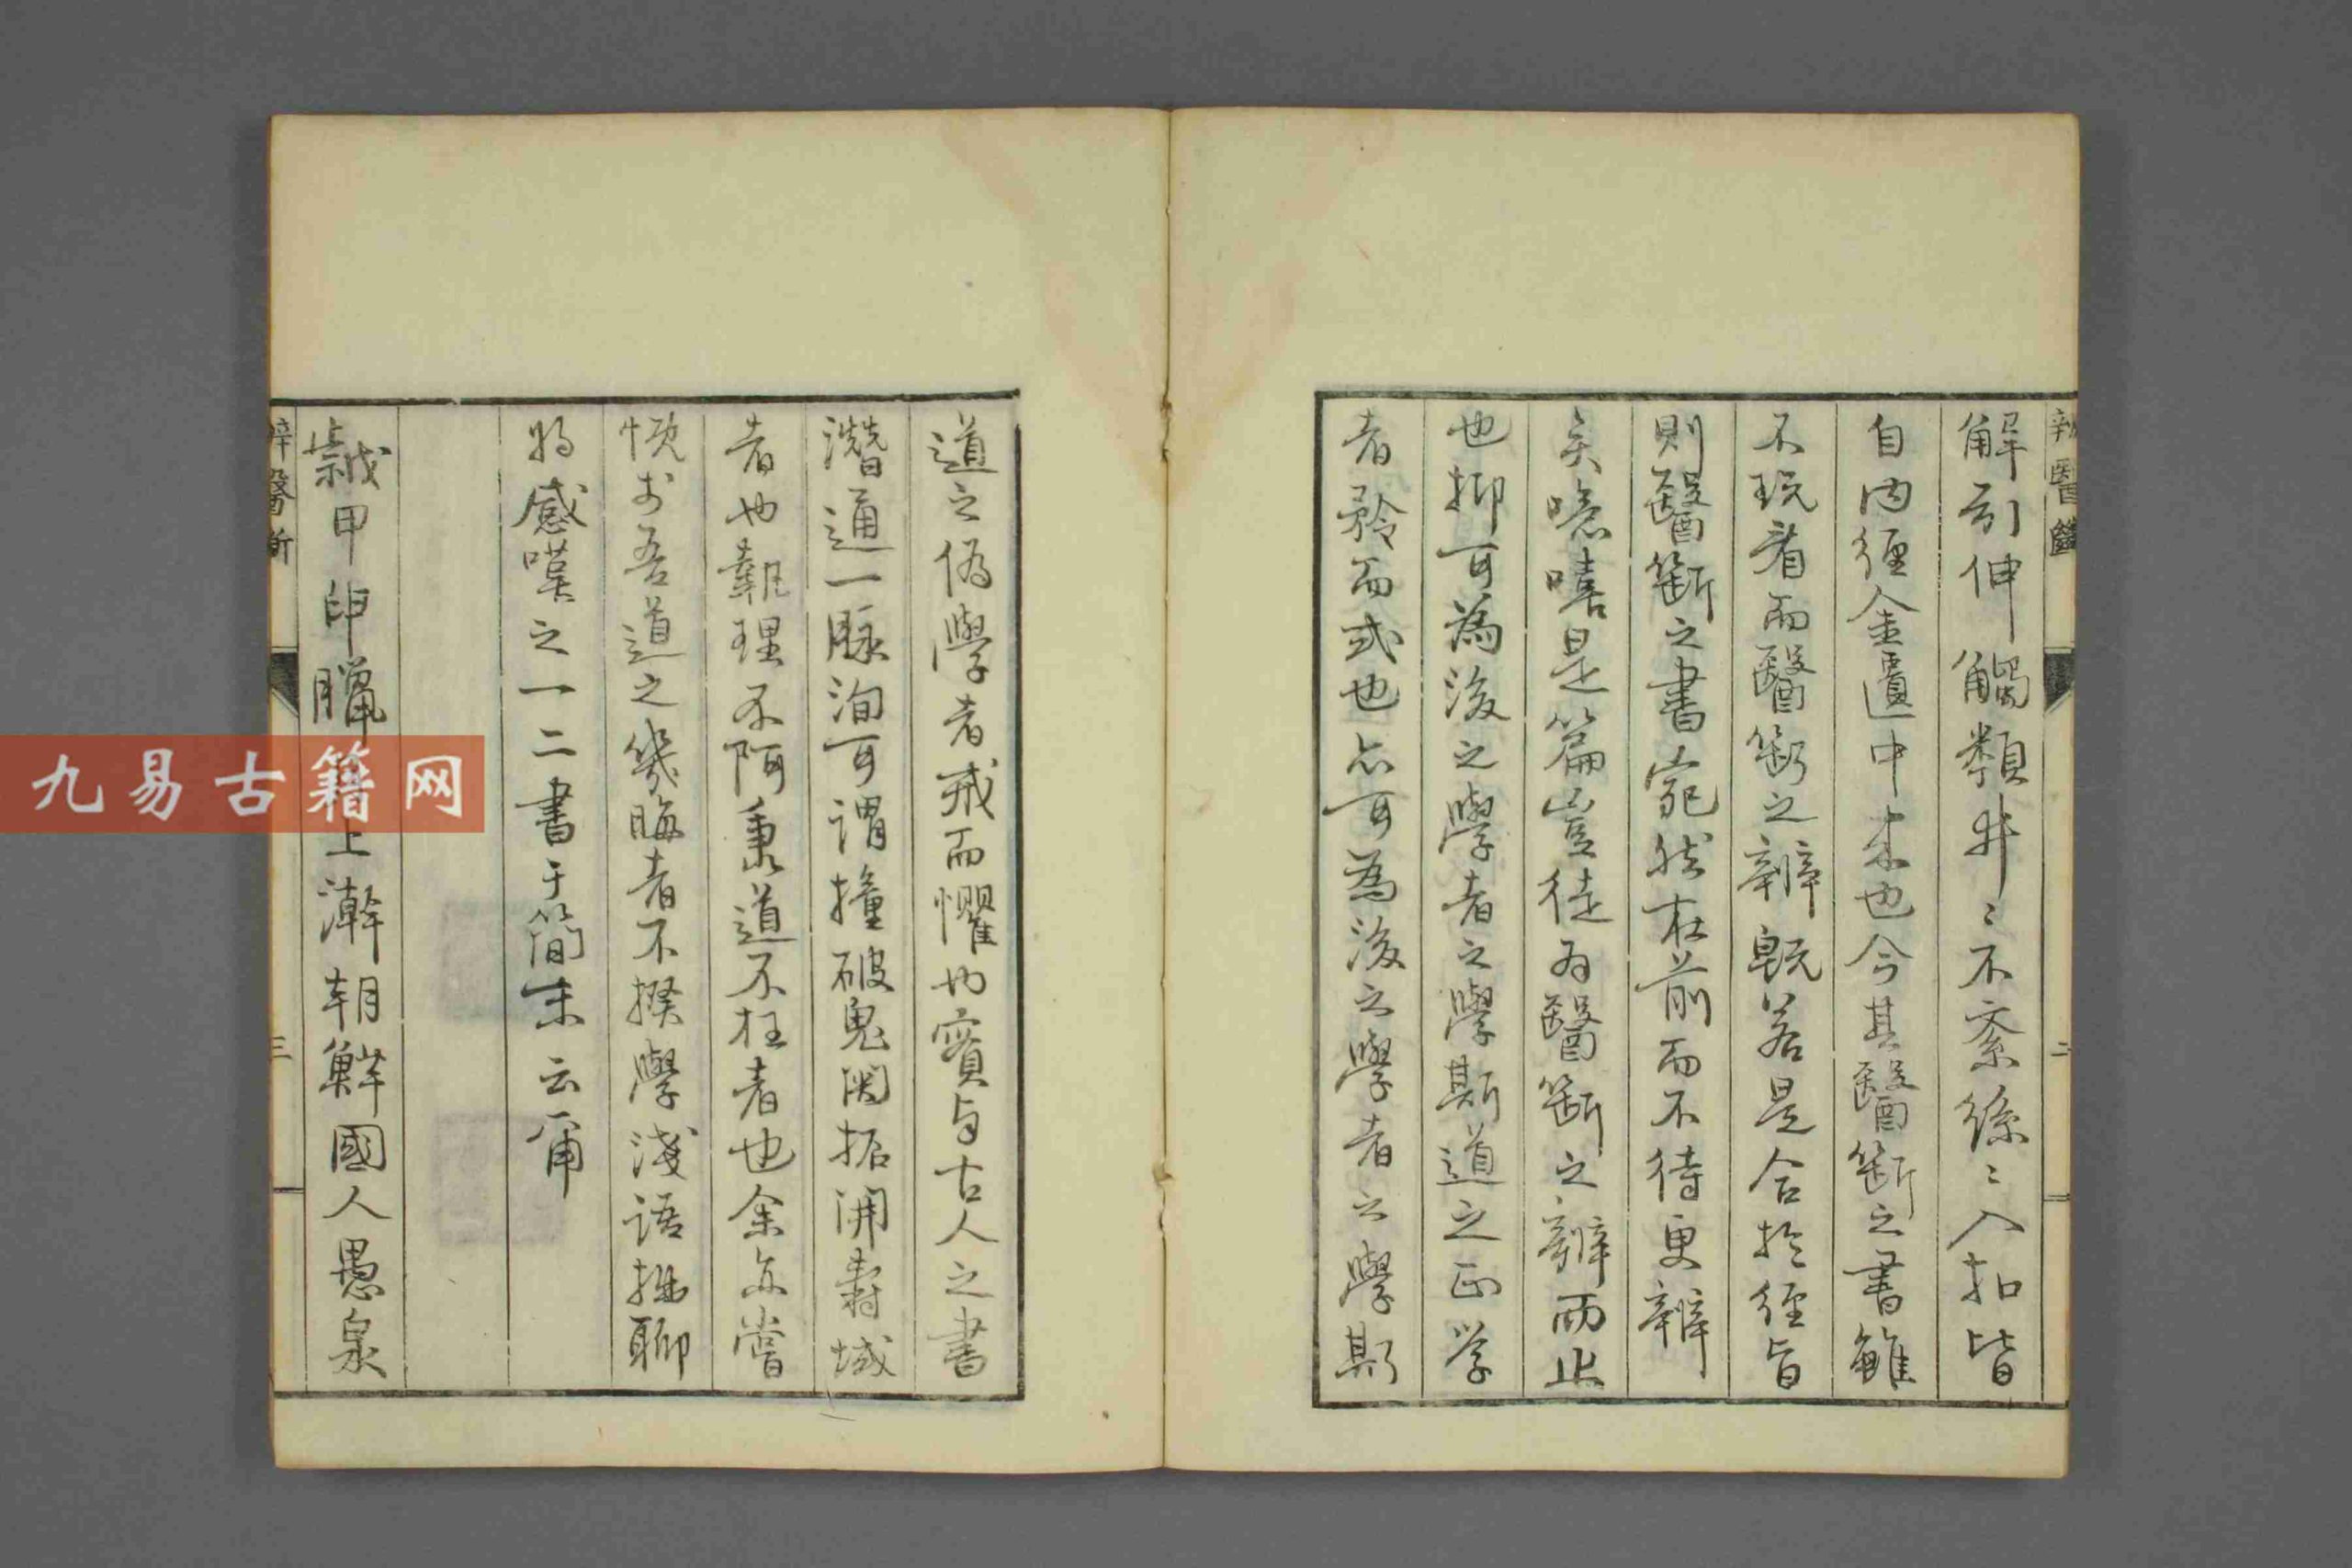 辨醫斷
二
解引伸觸類井〻不紊絲〻入扣皆
自内經金匱中来也今其醫斷之書雖
不玩着而醫斷之辨既若是合於經旨
則醫斷之書宛然在前而不待更辨
矣噫嘻是篇豈徒為醫斷之辨而止
也抑可為後之學者之學斯道之正学
者矜而或也亦可為後之學者之學斯
道之偽學者戒而懼也寔与古人之書
潛通一脉洵可謂撞破鬼関拓開壽域
者也執理不阿秉道不枉者也余亦嘗
慨於吾道之幾晦者不揆學淺語拙聊
将感嘆之一二書于簡末云爾
歲甲申臘上澣朝鮮國人愚泉
辨醫斷
三
九易古籍网